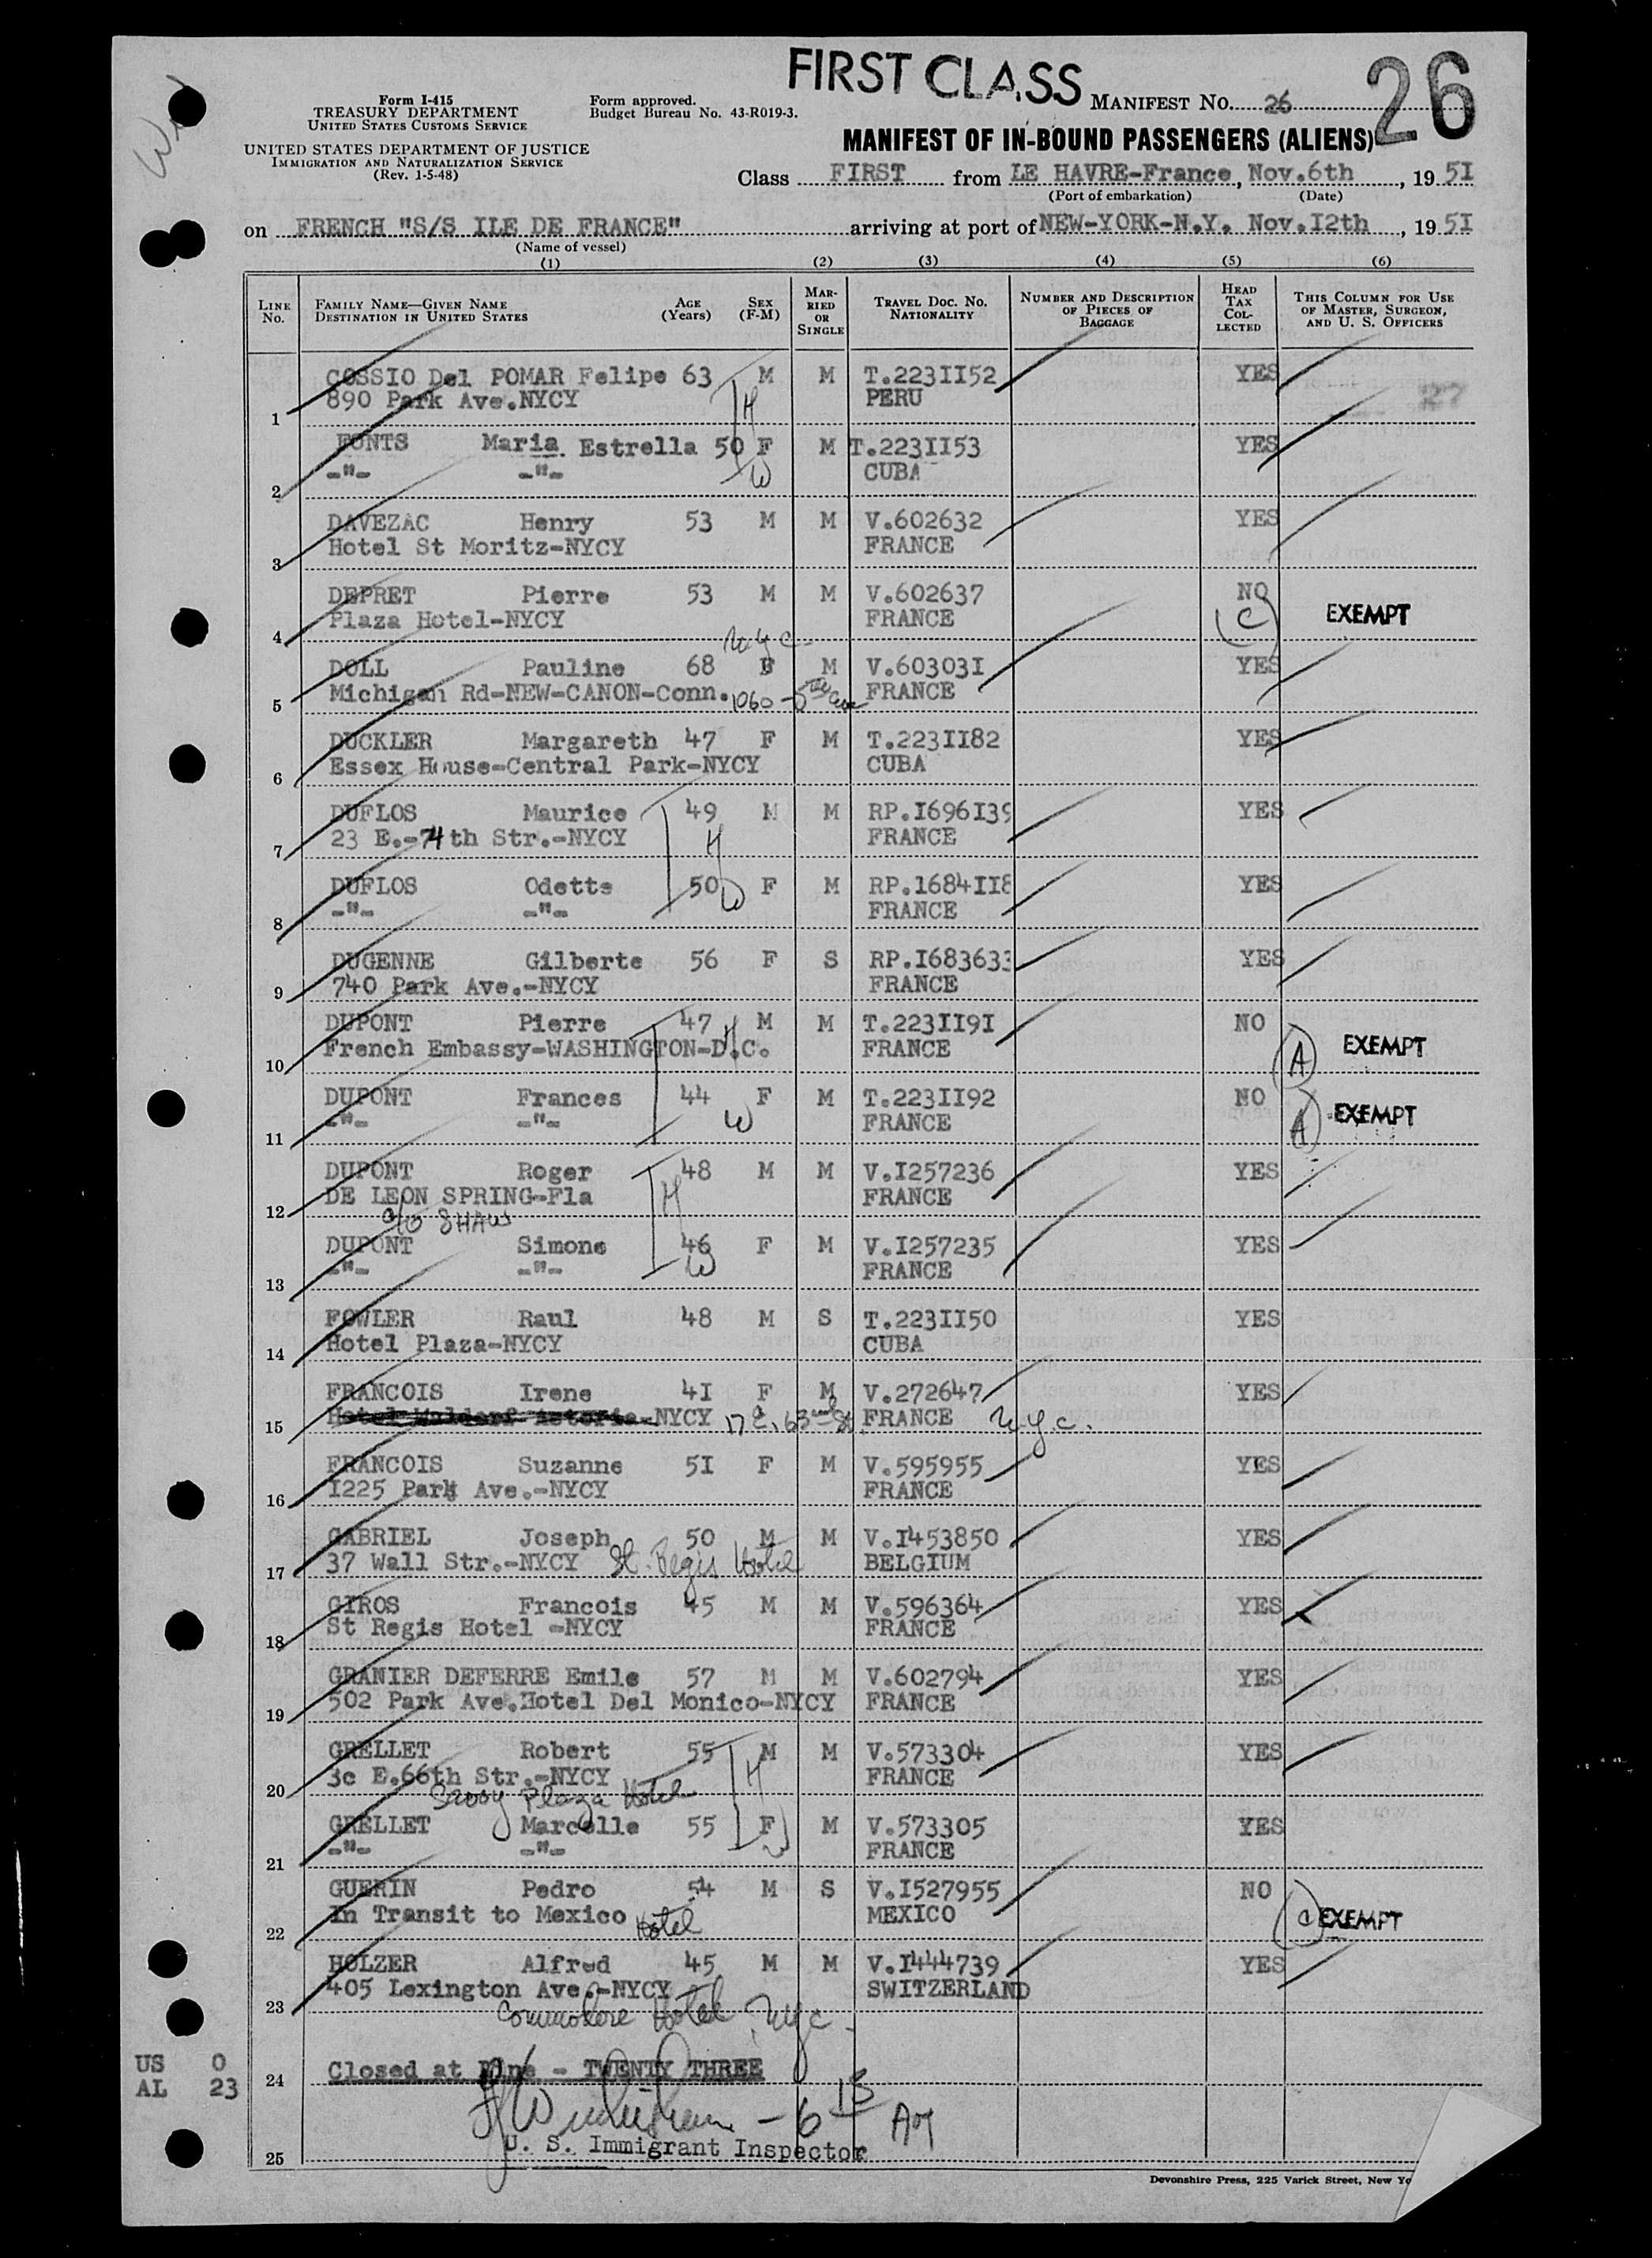 FIRST CLASS
26
Form I-415
TREASURY DEPARTMENT
UNITED STATES CUSTOMS SERVICE
Form approved.
Budget Bureau No. 43-R019-3.
MANIFEST NO. 26
UNITED STATES DEPARTMENT OF JUSTICE
IMMIGRATION AND NATURALIZATION SERVICE
(Rev. 1-5-48)
MANIFEST OF IN-BOUND PASSENGERS (ALIENS)
Class FIRST from LE HAVRE-France, Nov.6th, 1951
(Port of embarkation) (Date)
on FRENCH "S/S ILE DE FRANCE" arriving at port of NEW-YORK-N.Y. Nov.I2th, 195I
(Name of vessel)
(1) (2) (3) (4) (5) (6)
LINE No. FAMILY NAME—GIVEN NAME DESTINATION IN UNITED STATES AGE (Years) SEX (F-M) MARRIED OR SINGLE TRAVEL DOC. NO. NATIONALITY NUMBER AND DESCRIPTION OF PIECES OF BAGGAGE HEAD TAX COLLECTED THIS COLUMN FOR USE OF MASTER, SURGEON, AND U. S. OFFICERS
COSSIO Del POMAR Felipe 63 M M T.223II52 YES
1 890 Park Ave.NYCY PERU 27
H
FONTS Maria Estrella 50 F M T.223II53 YES
2 -"- -"- W CUBA
DAVEZAC Henry 53 M M V.602632 YES
3 Hotel St Moritz-NYCY FRANCE
DEPRET Pierre 53 M M V.602637 NO EXEMPT
4 Plaza Hotel-NYCY FRANCE (C)
N.Y.C.
DOLL Pauline 68 F M V.60303I YES
5 Michigan Rd-NEW-CANON-Conn. 1060-5th Ave FRANCE
DUCKLER Margareth 47 F M T.223II82 YES
6 Essex House-Central Park-NYCY CUBA
DUFLOS Maurice 49 M M RP.I696I39 YES
7 23 E.-74th Str.-NYCY H FRANCE
DUFLOS Odette 50 W F M RP.I684II8 YES
8 -"- -"- FRANCE
DUGENNE Gilberte 56 F S RP.I683633 YES
9 740 Park Ave.-NYCY FRANCE
DUPONT Pierre 47 H M M T.223II9I NO
10 French Embassy-WASHINGTON-D.C. FRANCE (A) EXEMPT
DUPONT Frances 44 F M T.223II92 NO
11 -"- -"- W FRANCE (A) EXEMPT
DUPONT Roger 48 M M V.I257236 YES
12 DE LEON SPRING-Fla H FRANCE
c/o SHAW
DUPONT Simone 46 F M V.I257235 YES
13 -"- -"- W FRANCE
FOWLER Raul 48 M S T.223II50 YES
14 Hotel Plaza-NYCY CUBA
FRANCOIS Irene 4I F M V.272647 YES
15 Hotel Waldorf Astoria-NYCY 17 E. 63rd St. FRANCE N.Y.C.
FRANCOIS Suzanne 5I F M V.595955 YES
16 I225 Park Ave.-NYCY FRANCE
GABRIEL Joseph 50 M M V.I453850 YES
17 37 Wall Str.-NYCY St. Regis Hotel BELGIUM
GIROS Francois 45 M M V.596364 YES
18 St Regis Hotel -NYCY FRANCE
GRANIER DEFERRE Emile 57 M M V.602794 YES
19 502 Park Ave.Hotel Del Monico-NYCY FRANCE
GRELLET Robert 55 M M V.573304 YES
20 3c E.66th Str.-NYCY H FRANCE
Savoy Plaza Hotel
GRELLET Marcelle 55 F M V.573305 YES
21 -"- -"- W FRANCE
GUERIN Pedro 54 M S V.I527955 NO
22 In Transit to Mexico Hotel MEXICO EXEMPT
HOLZER Alfred 45 M M V.I444739 YES
23 405 Lexington Ave.-NYCY SWITZERLAND
Commodore Hotel NYC.
US 0
24 Closed at line - TWENTY THREE
AL 23
25 U. S. Immigrant Inspector
Devonshire Press, 225 Varick Street, New Yo